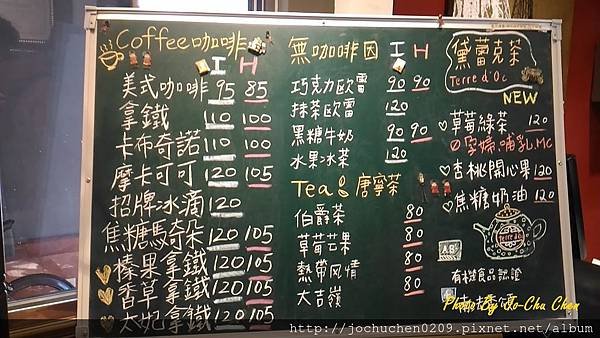 Coffee咖啡 I H
美式咖啡 95 85
拿鐵 110 100
卡布奇諾 110 100
摩卡可可 120 105
招牌冰滴 120
焦糖瑪奇朵 120 105
榛果拿鐵 120 105
香草拿鐵 120 105
太妃拿鐵 120 105
無咖啡因 I H
巧克力歐蕾 90 90
抹茶歐蕾 120
黑糖牛奶 90 90
水果冰茶 120
Tea 唐寧茶
伯爵茶 80
草莓芒果 80
熱帶風情 80
大吉嶺 80
黛蕾克茶
Terre d'Oc
NEW
草莓綠茶 120
孕婦.哺乳.MC
杏桃開心果 120
焦糖奶油 120
Terre d'Oc
AB
有機食品認證
Photo By Jo-Chu Chen
http://jochuchen0209.pixnet.net/album